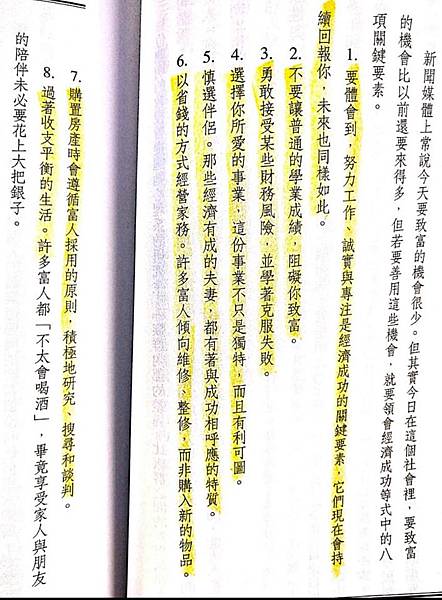 新聞媒體上常說今天要致富的機會很少。但其實今日在這個社會裡，要致富
的機會比以前還要來得多，但若要善用這些機會，就要領會經濟成功等式中的八
項關鍵要素。
1. 要體會到，努力工作、誠實與專注是經濟成功的關鍵要素，它們現在會持
續回報你，未來也同樣如此。
2. 不要讓普通的學業成績，阻礙你致富。
3. 勇敢接受某些財務風險，並學著克服失敗。
4. 選擇你所愛的事業，這份事業不只是獨特，而且有利可圖。
5. 慎選伴侶。那些經濟有成的夫妻，都有著與成功相呼應的特質。
6. 以省錢的方式經營家務。許多富人傾向維修、整修，而非購入新的物品。
7. 購置房產時會遵循富人採用的原則，積極地研究、搜尋和談判。
8. 過著收支平衡的生活。許多富人都「不太會喝酒」，畢竟享受家人與朋友
的陪伴未必要花上大把銀子。